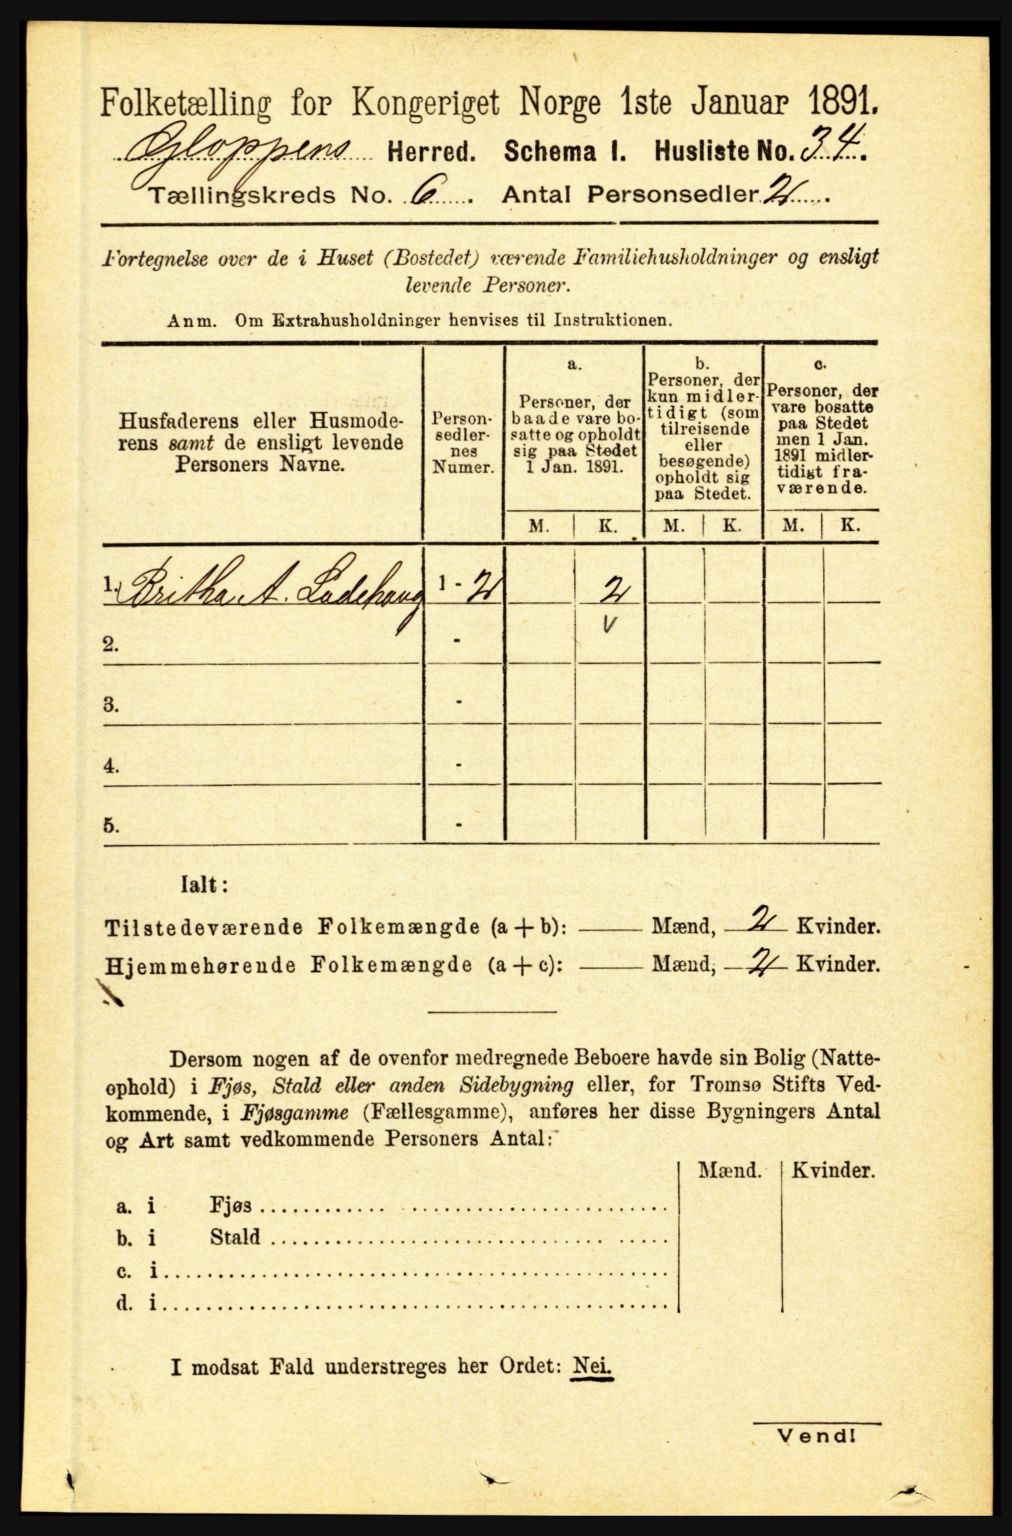 Folketælling for Kongeriget Norge 1ste Januar 1891.
Gloppens Herred. Schema I. Husliste No. 34.
Tællingskreds No. 6. Antal Personsedler 2.
Fortegnelse over de i Huset (Bostedet) værende Familiehusholdninger og ensligt
levende Personer.
Anm. Om Extrahusholdninger henvises til Instruktionen.
Husfaderens eller Husmode-
rens samt de ensligt levende
Personers Navne.
Person-
sedler-
nes
Numer.
a.
Personer, der
baade vare bo-
satte og opholdt
sig paa Stedet
1 Jan. 1891.
b.
Personer, der
kun midler-
tidigt (som
tilreisende
eller
besøgende)
opholdt sig
paa Stedet.
c.
Personer, der
vare bosatte
paa Stedet
men 1 Jan.
1891 midler-
tidigt fra-
værende.
M. K. M. K. M. K.
1. Britha A. Ladehaug 1 - 2 2
2. - v
3. -
4. -
5. -
Ialt:
Tilstedeværende Folkemængde (a + b): — Mænd, 2 Kvinder.
Hjemmehørende Folkemængde (a + c): — Mænd, 2 Kvinder.
Dersom nogen af de ovenfor medregnede Beboere havde sin Bolig (Natte-
ophold) i Fjøs, Stald eller anden Sidebygning eller, for Tromsø Stifts Ved-
kommende, i Fjøsgamme (Fællesgamme), anføres her disse Bygningers Antal
og Art samt vedkommende Personers Antal:
Mænd. Kvinder.
a. i Fjøs
b. i Stald
c. i
d. i
I modsat Fald understreges her Ordet: Nei.
Vend!